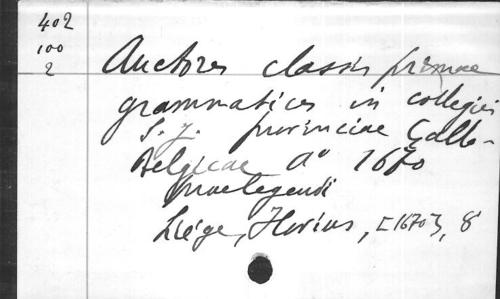 402
100
2
Auctores classis primae
grammatices in collegiis
S. J. provinciae Gallo-
Belgicae A° 1670
praelegendi
Liége, Hovius, [1670], 8°